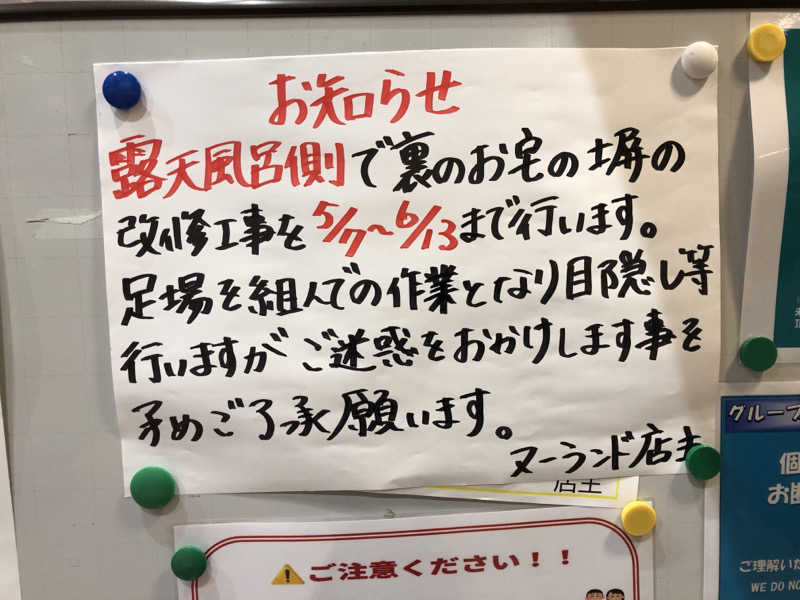 お知らせ
露天風呂側で裏のお宅の塀の
改修工事を5/7〜6/13まで行います。
足場を組んでの作業となり目隠し等
行いますがご迷惑をおかけします事を
予めご了承願います。
ヌーランド店主
店主
⚠ご注意ください！！
グループ
個
お断
ご理解いた
WE DO NO